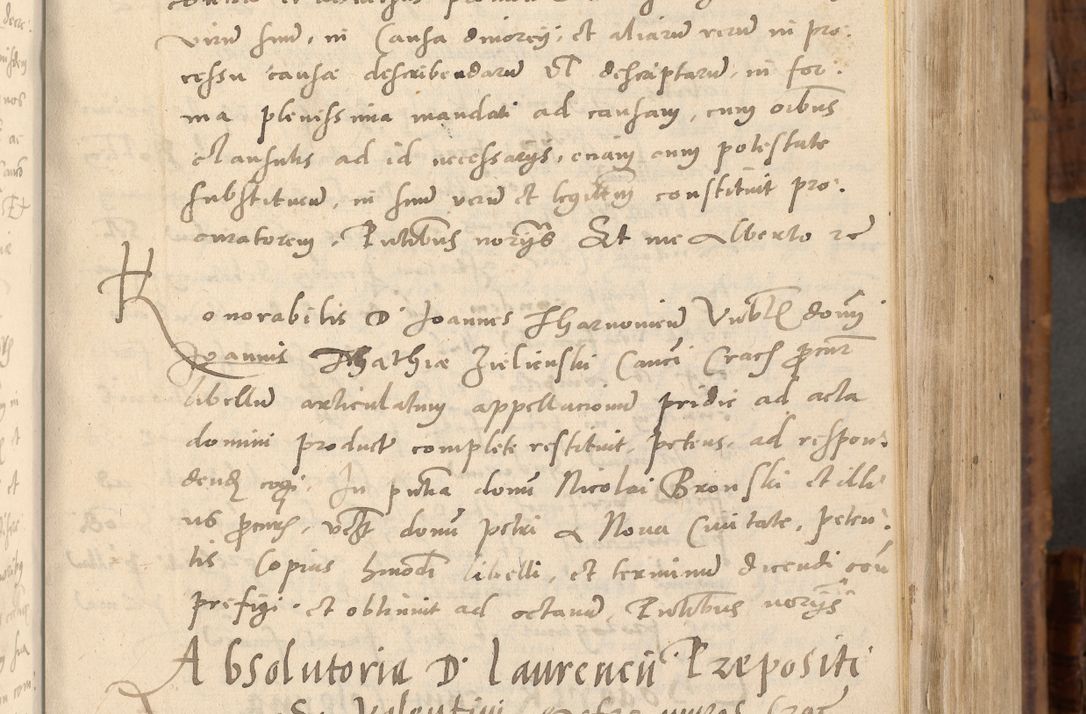 virum suum, in Causa divorcij, et aliarum rerum in pro-
cessu causae describendarum vel descriptarum, in for-
ma plenissima mandati ad causam, cum oibus
clausulis ad id necessarijs, etiam cum potestate
substituen, in suum verum et legittm constituit pro-
curatorem. Pntibus norijs Et me Alberto re
Honorabilis D. Joannes Tharnovien Vicbtl domi
Joannis Mathiae Zielienski Canci Crac procur
libellum articulatum appellacionum pridie ad acta
domini product complete restituit, petens, ad respon-
dend cogi. In pntia domi Nicolai Bronski et illi-
us procur, vest domi Petri a Nova Civitate, peten-
tis Copias hmodi libelli, et terminum dicendi con
prefigi. et obtinuit ad octavum, Pntibus norijs
Absolutoria D. Laurencij Przepositi
S. Valentini